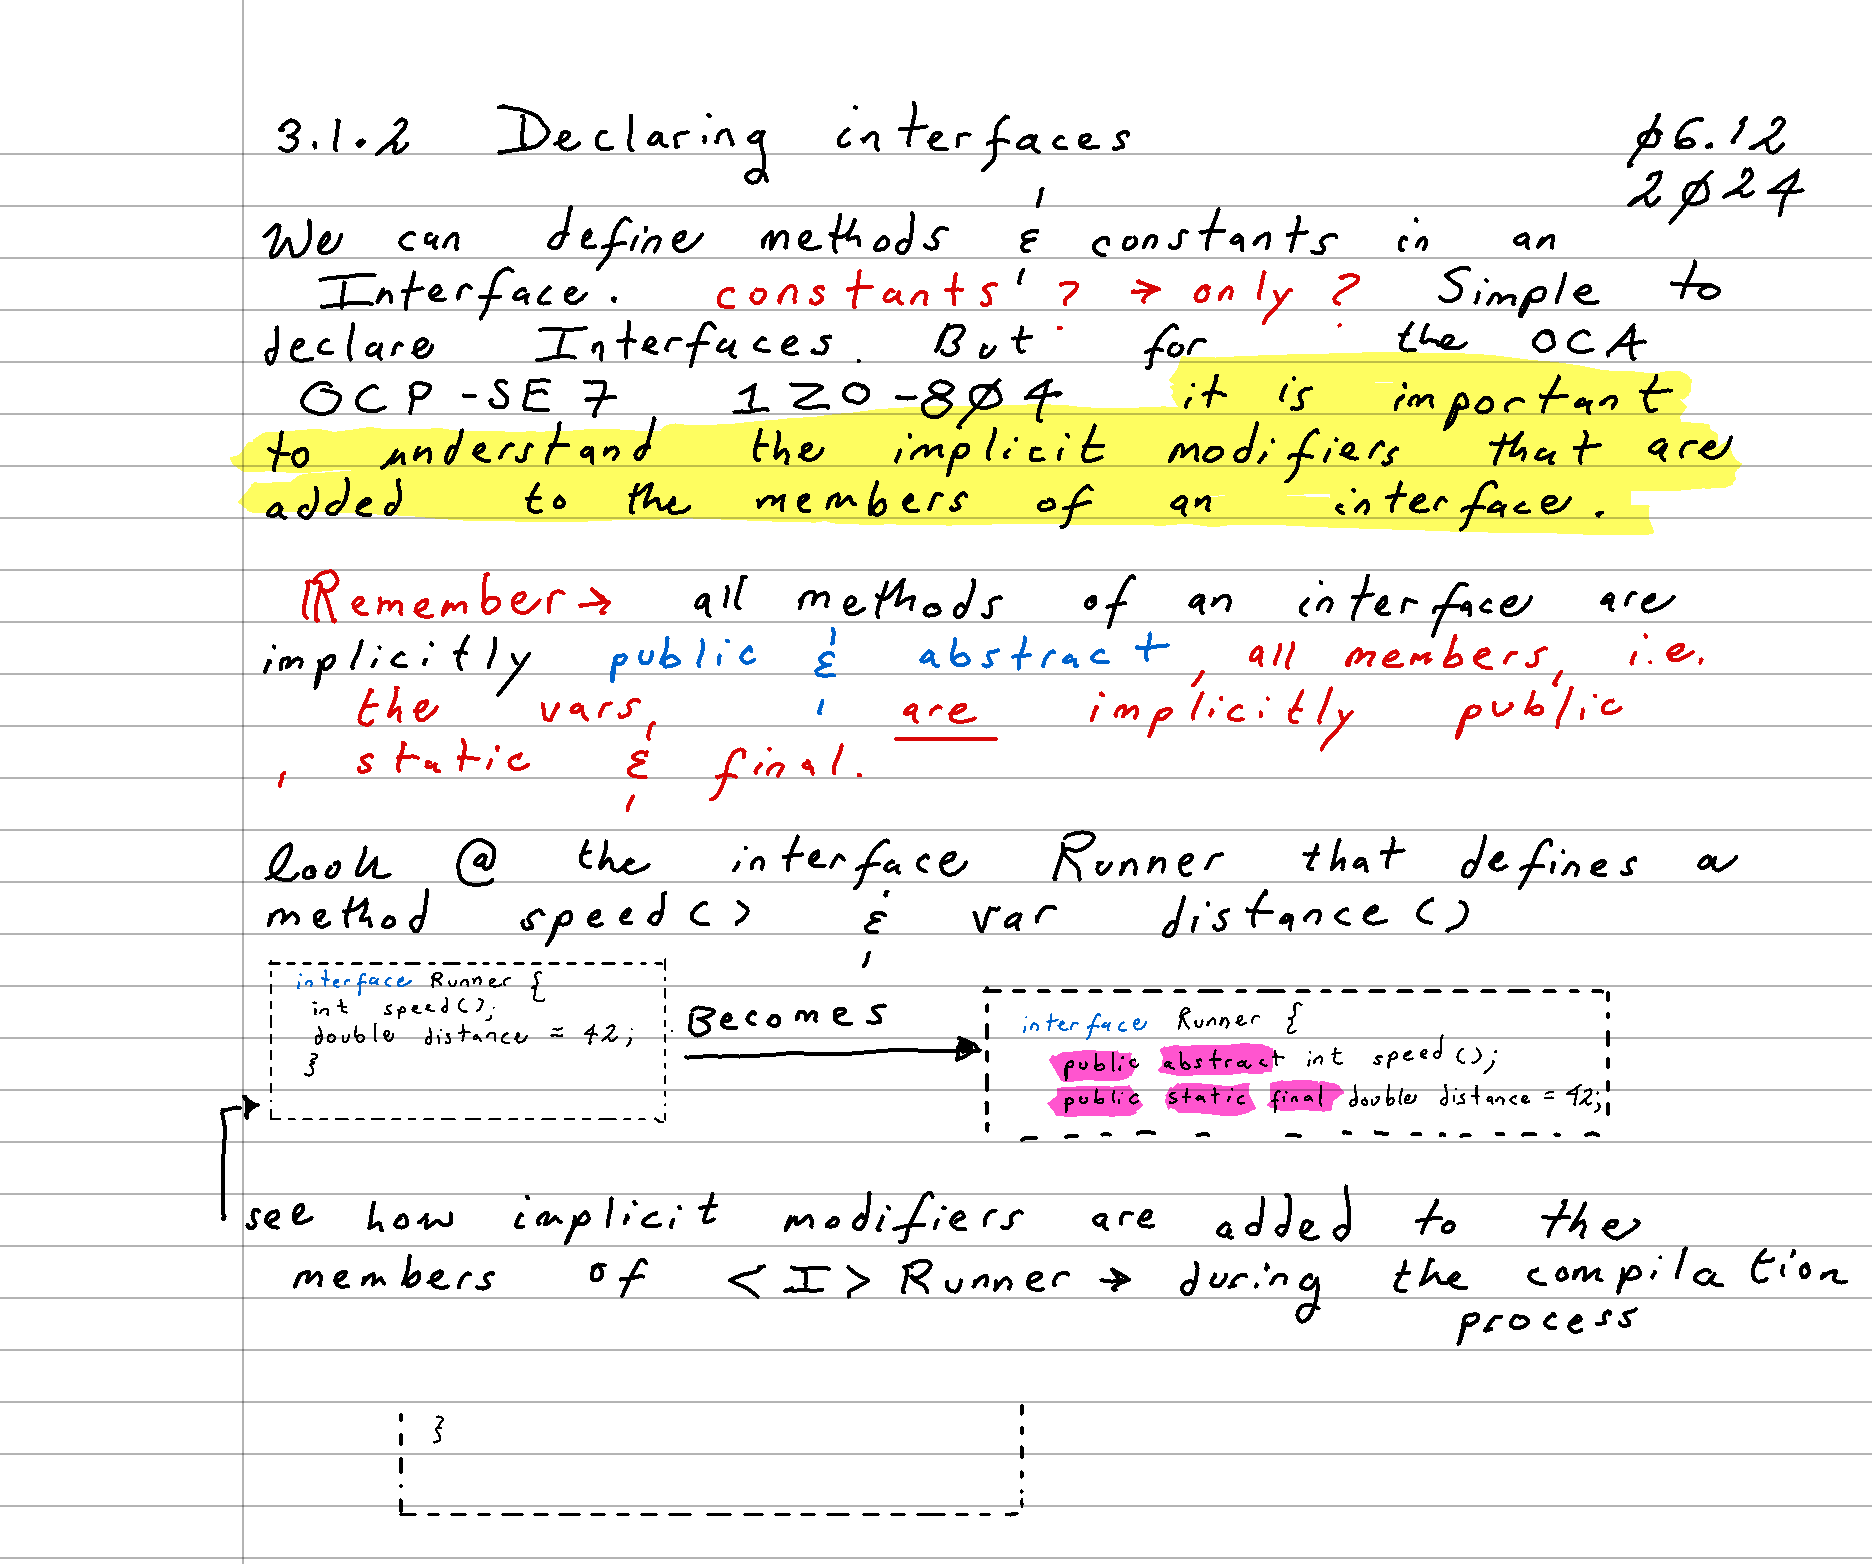 3.1.2 Declaring interfaces
06.12
2024
We can define methods & constants in an
Interface. constants'? → only? Simple to
declare Interfaces. But for the OCA
OCP-SE7 1Z0-804 it is important
to understand the implicit modifiers that are
added to the members of an interface.
Remember → all methods of an interface are
implicitly public & abstract, all members, i.e.
the vars, are implicitly public
, static & final.
look @ the interface Runner that defines a
method speed() & var distance()
interface Runner {
int speed();
double distance = 42;
}
Becomes
interface Runner {
public abstract int speed();
public static final double distance = 42;
see how implicit modifiers are added to the
members of <I> Runner → during the compilation
process
}